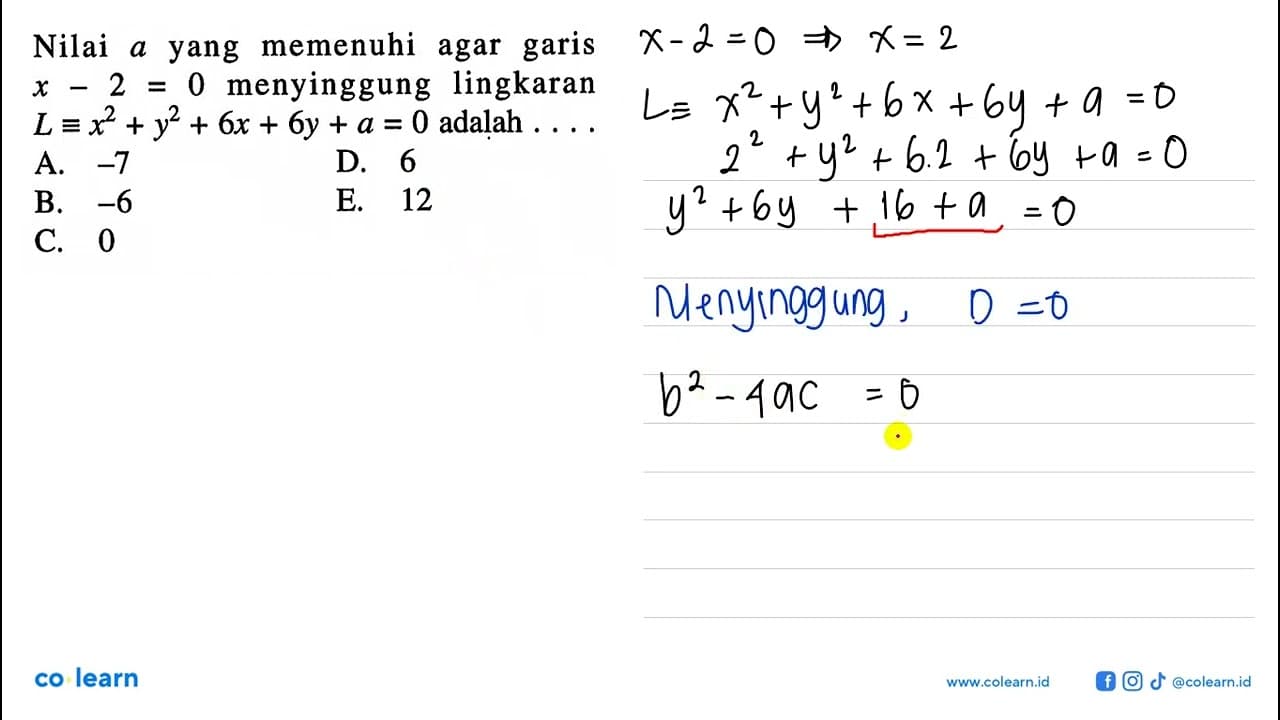 Nilai a yang memenuhi agar garis
x − 2 = 0 menyinggung lingkaran
L ≡ x² + y² + 6x + 6y + a = 0 adalah . . . .
A. −7 D. 6
B. −6 E. 12
C. 0
x − 2 = 0 ⇒ x = 2
L≡ x² + y² + 6x + 6y + a = 0
2² + y² + 6.2 + 6y + a = 0
y² + 6y + 16 + a = 0
Menyinggung, D = 0
b² − 4ac = 0
co learn
www.colearn.id
@colearn.id